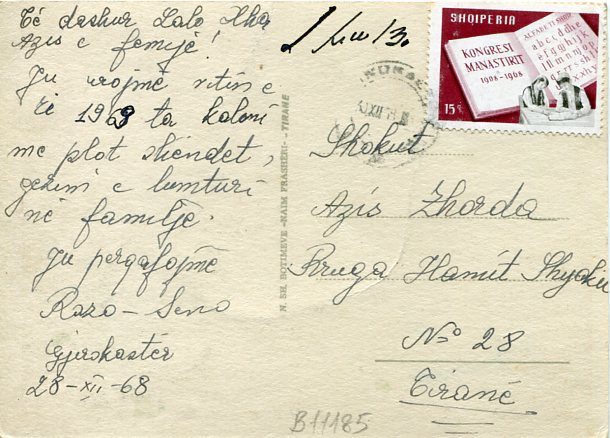 Të dashur Lalo Xha
Azis e femijë!
Ju urojmë vitin e
ri 1969 ta kaloni
me plot shëndet,
gezim e lumturi
në familje.
Ju përqafojmë
Razo – Seno
Gjirokastër
28-XII-68
N. SH. BOTIMEVE -NAIM FRASHERI- -TIRANE
SHQIPERIA
KONGRESI
MANASTIRIT
1908-1968
ALFABETI SHQIP
15q
Shokut
Azis Zhorda
Rruga Hamit Shyoku
No 28
Tiranë
B11185